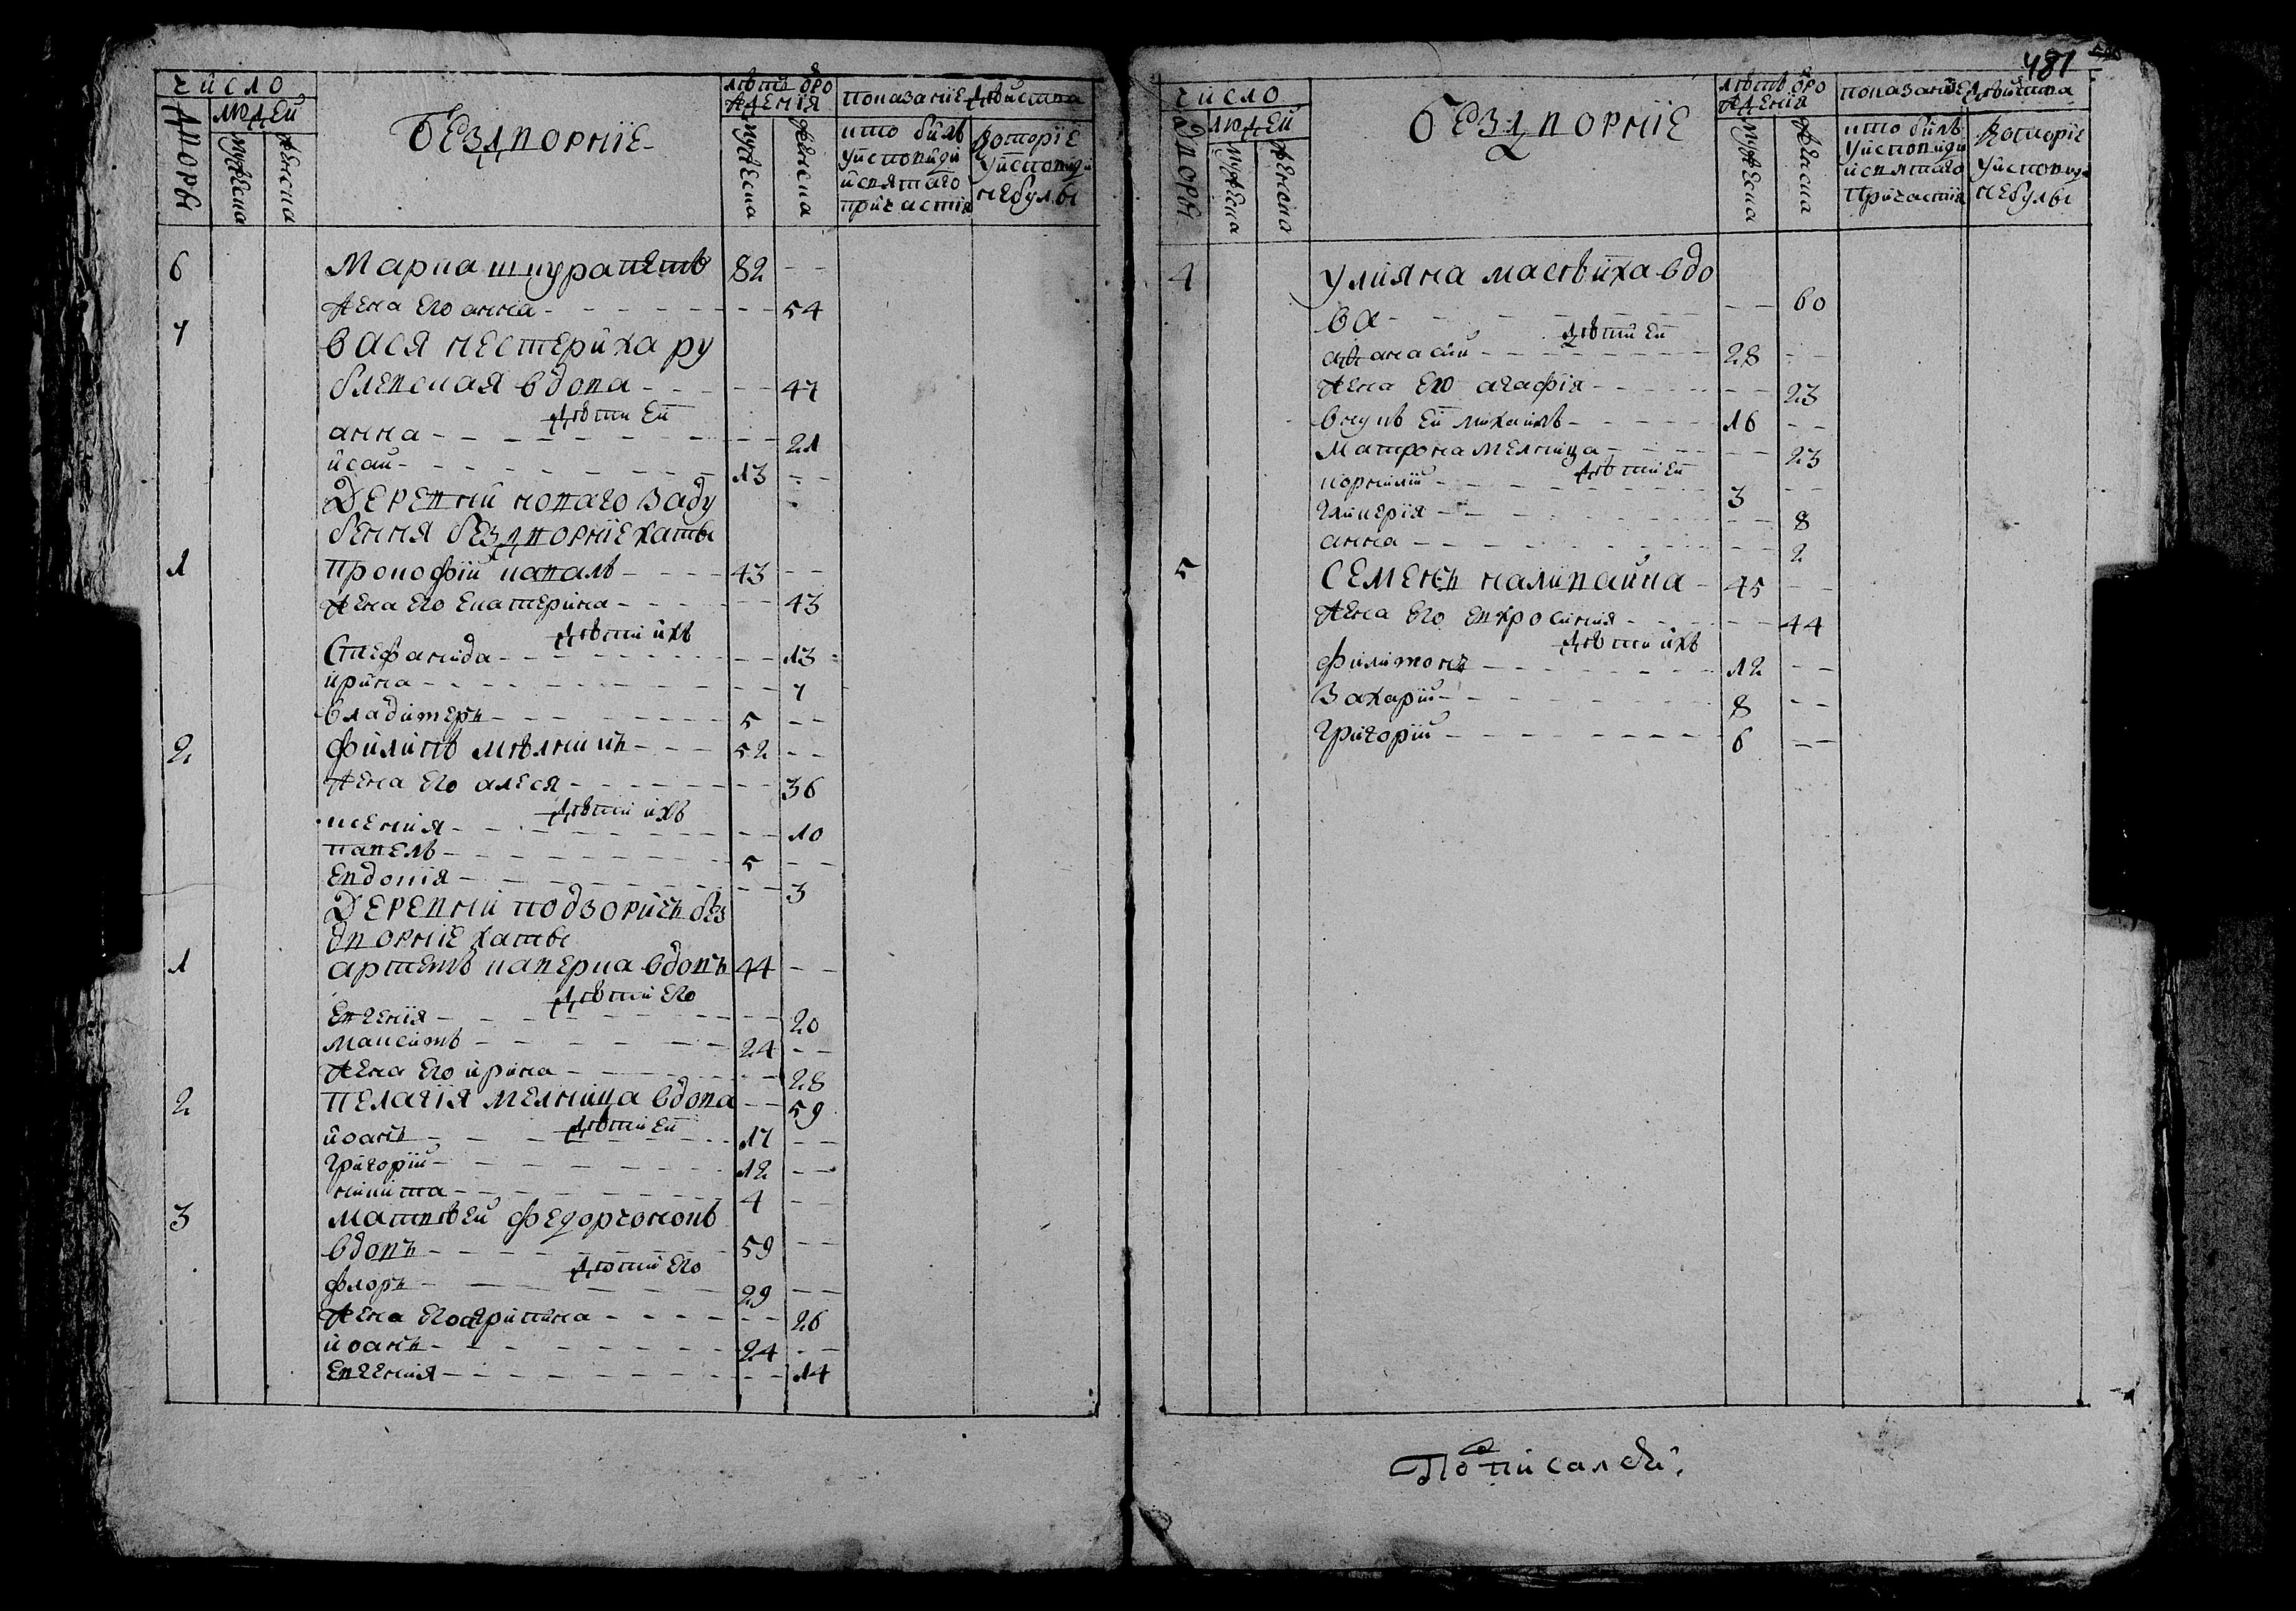 число
Дворы
людей
мужеска
женска
безДворніе
лѣтъ отро
жденія
мужеска
женска
показаніе действа
кто билъ
у исповѣди
и святаго
причастія
которіе
у исповѣди
не були
6 Марка шкуратетъ 82 - -
жена его анна - - 54
7 вася нестериха ру
блевская вдова - - 47
дѣти ей
анна - - 21
исай 13 - -
Деревни новаго заду
бення бездворніе хаты
1 прокофій коваль 43 - -
жена его екатерина - - 43
дѣти ихъ
Стефанида - - 13
ирина - - 7
владимеръ 5 - -
2 филипъ мѣлникъ 52 - -
жена его алеся - - 36
дѣти ихъ
ксенія - - 10
павелъ 5 - -
евдокія - - 3
Деревни подзоричъ без
дворніе хаты
1 артемъ каверпа вдовъ 44 - -
дѣти его
евгенія - - 20
максимъ 24 - -
жена его ирина - - 28
2 пелагія мелница вдова - - 59
дѣти ей
иоанъ 17 - -
григорій 12 - -
никита 4 - -
3 матвѣй федорченокъ
вдовъ 59 - -
дѣти его
флоръ 29 - -
жена его агрипина - - 26
иоанъ 24 - -
евгенія - - 14
481
число
Дворы
людей
мужеска
женска
безДворніе
лѣтъ отро
жденія
мужеска
женска
показаніе действа
кто билъ
у исповѣди
и святаго
причастія
которіе
у исповѣди
не були
4 улияна маевиха вдо
ва - - 60
дѣти ей
афанасій 28 - -
жена его агафія - - 23
внукъ ей михаилъ 16 - -
матрона мелница - - 23
дѣти ей
корнилій 3 - -
гликерія - - 8
анна - - 2
5 семенъ наливайка 45 - -
жена его евхросинія - - 44
дѣти ихъ
филимонъ 12 - -
захарій 8 - -
григорій 6 - -